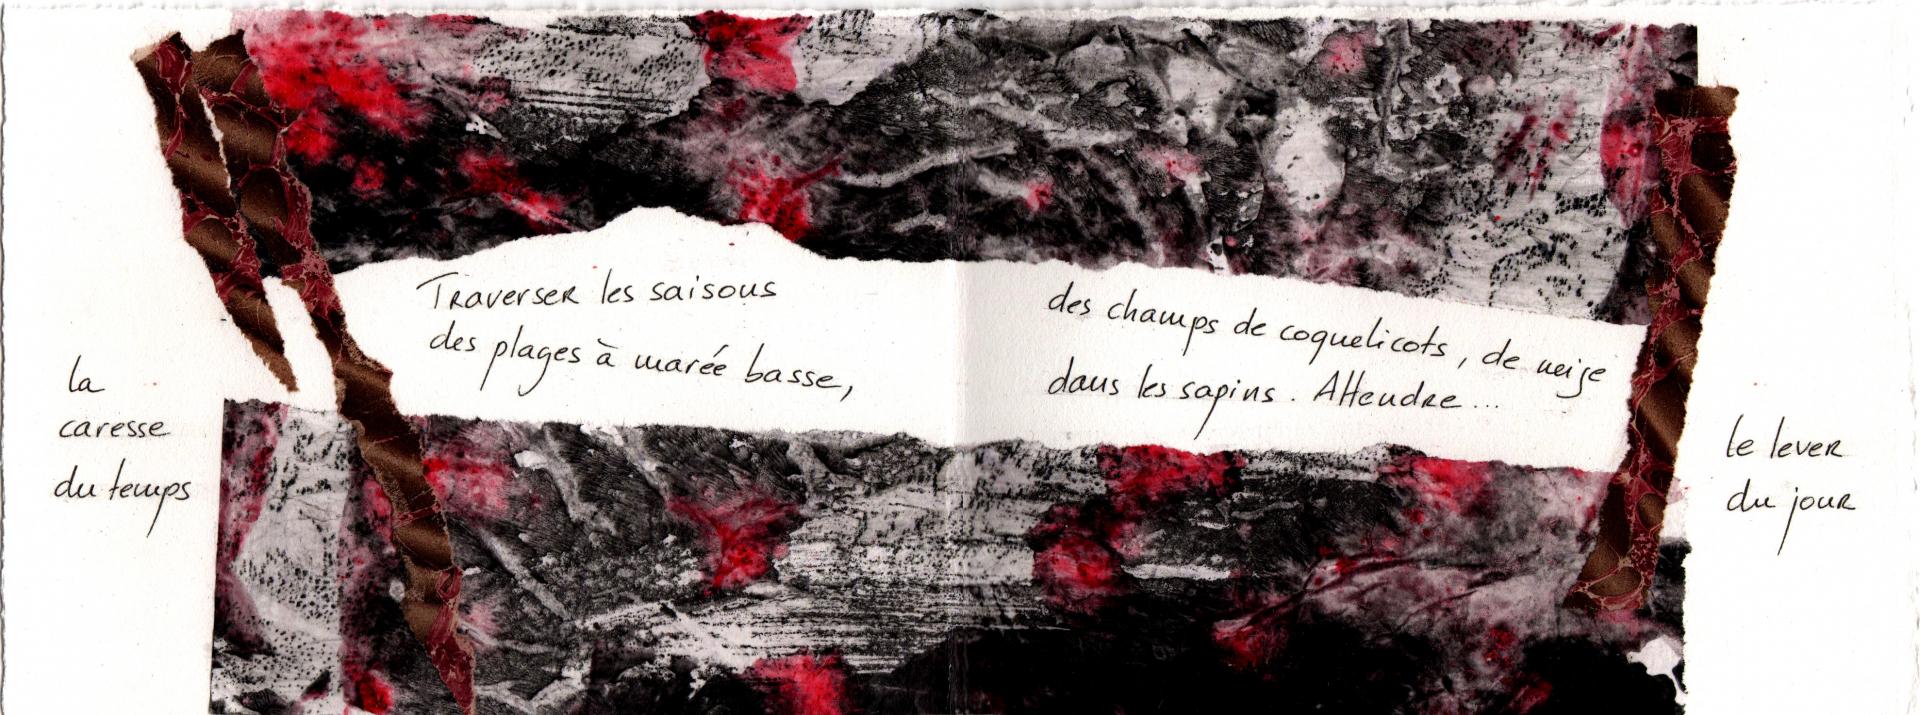 la
caresse
du temps
Traverser les saisons
des plages à marée basse,
des champs de coquelicots, de neige
dans les sapins. Attendre...
le lever
du jour